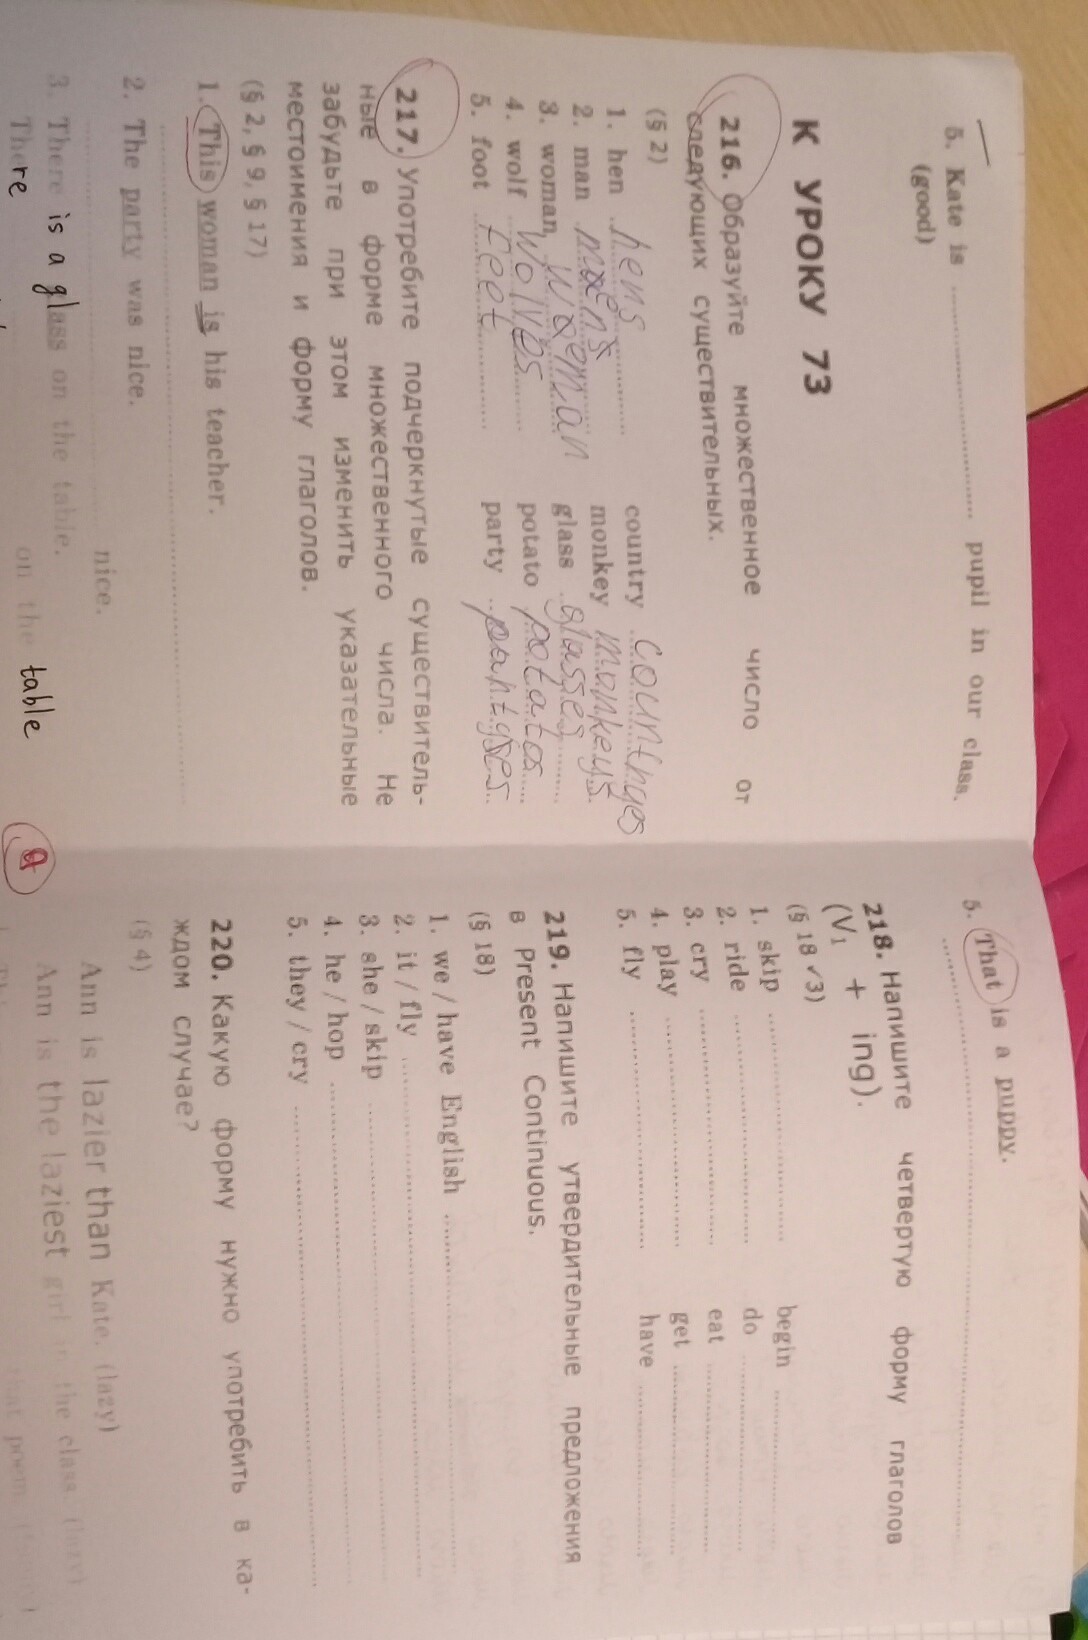 5. Kate is .......... pupil in our class.
(good)
К УРОКУ 73
216. Образуйте множественное число от
следующих существительных.
(§ 2)
1. hen hens country countryes
2. man mens monkey monkeys
3. woman weman glass glasses
4. wolf wolves potato potatos
5. foot feet party partyes
217. Употребите подчеркнутые существитель-
ные в форме множественного числа. Не
забудьте при этом изменить указательные
местоимения и форму глаголов.
(§ 2, § 9, § 17)
1. This woman is his teacher.
2. The party was nice.
nice.
3. There is a glass on the table.
There on the table
5. That is a puppy.
218. Напишите четвертую форму глаголов
(V1 + ing).
(§ 18 ✓3)
1. skip .......... begin ..........
2. ride .......... do ..........
3. cry .......... eat ..........
4. play .......... get ..........
5. fly .......... have ..........
219. Напишите утвердительные предложения
в Present Continuous.
(§ 18)
1. we / have English ..........
2. it / fly ..........
3. she / skip ..........
4. he / hop ..........
5. they / cry ..........
220. Какую форму нужно употребить в ка-
ждом случае?
(§ 4)
Ann is lazier than Kate. (lazy)
Ann is the laziest girl in the class. (lazy)